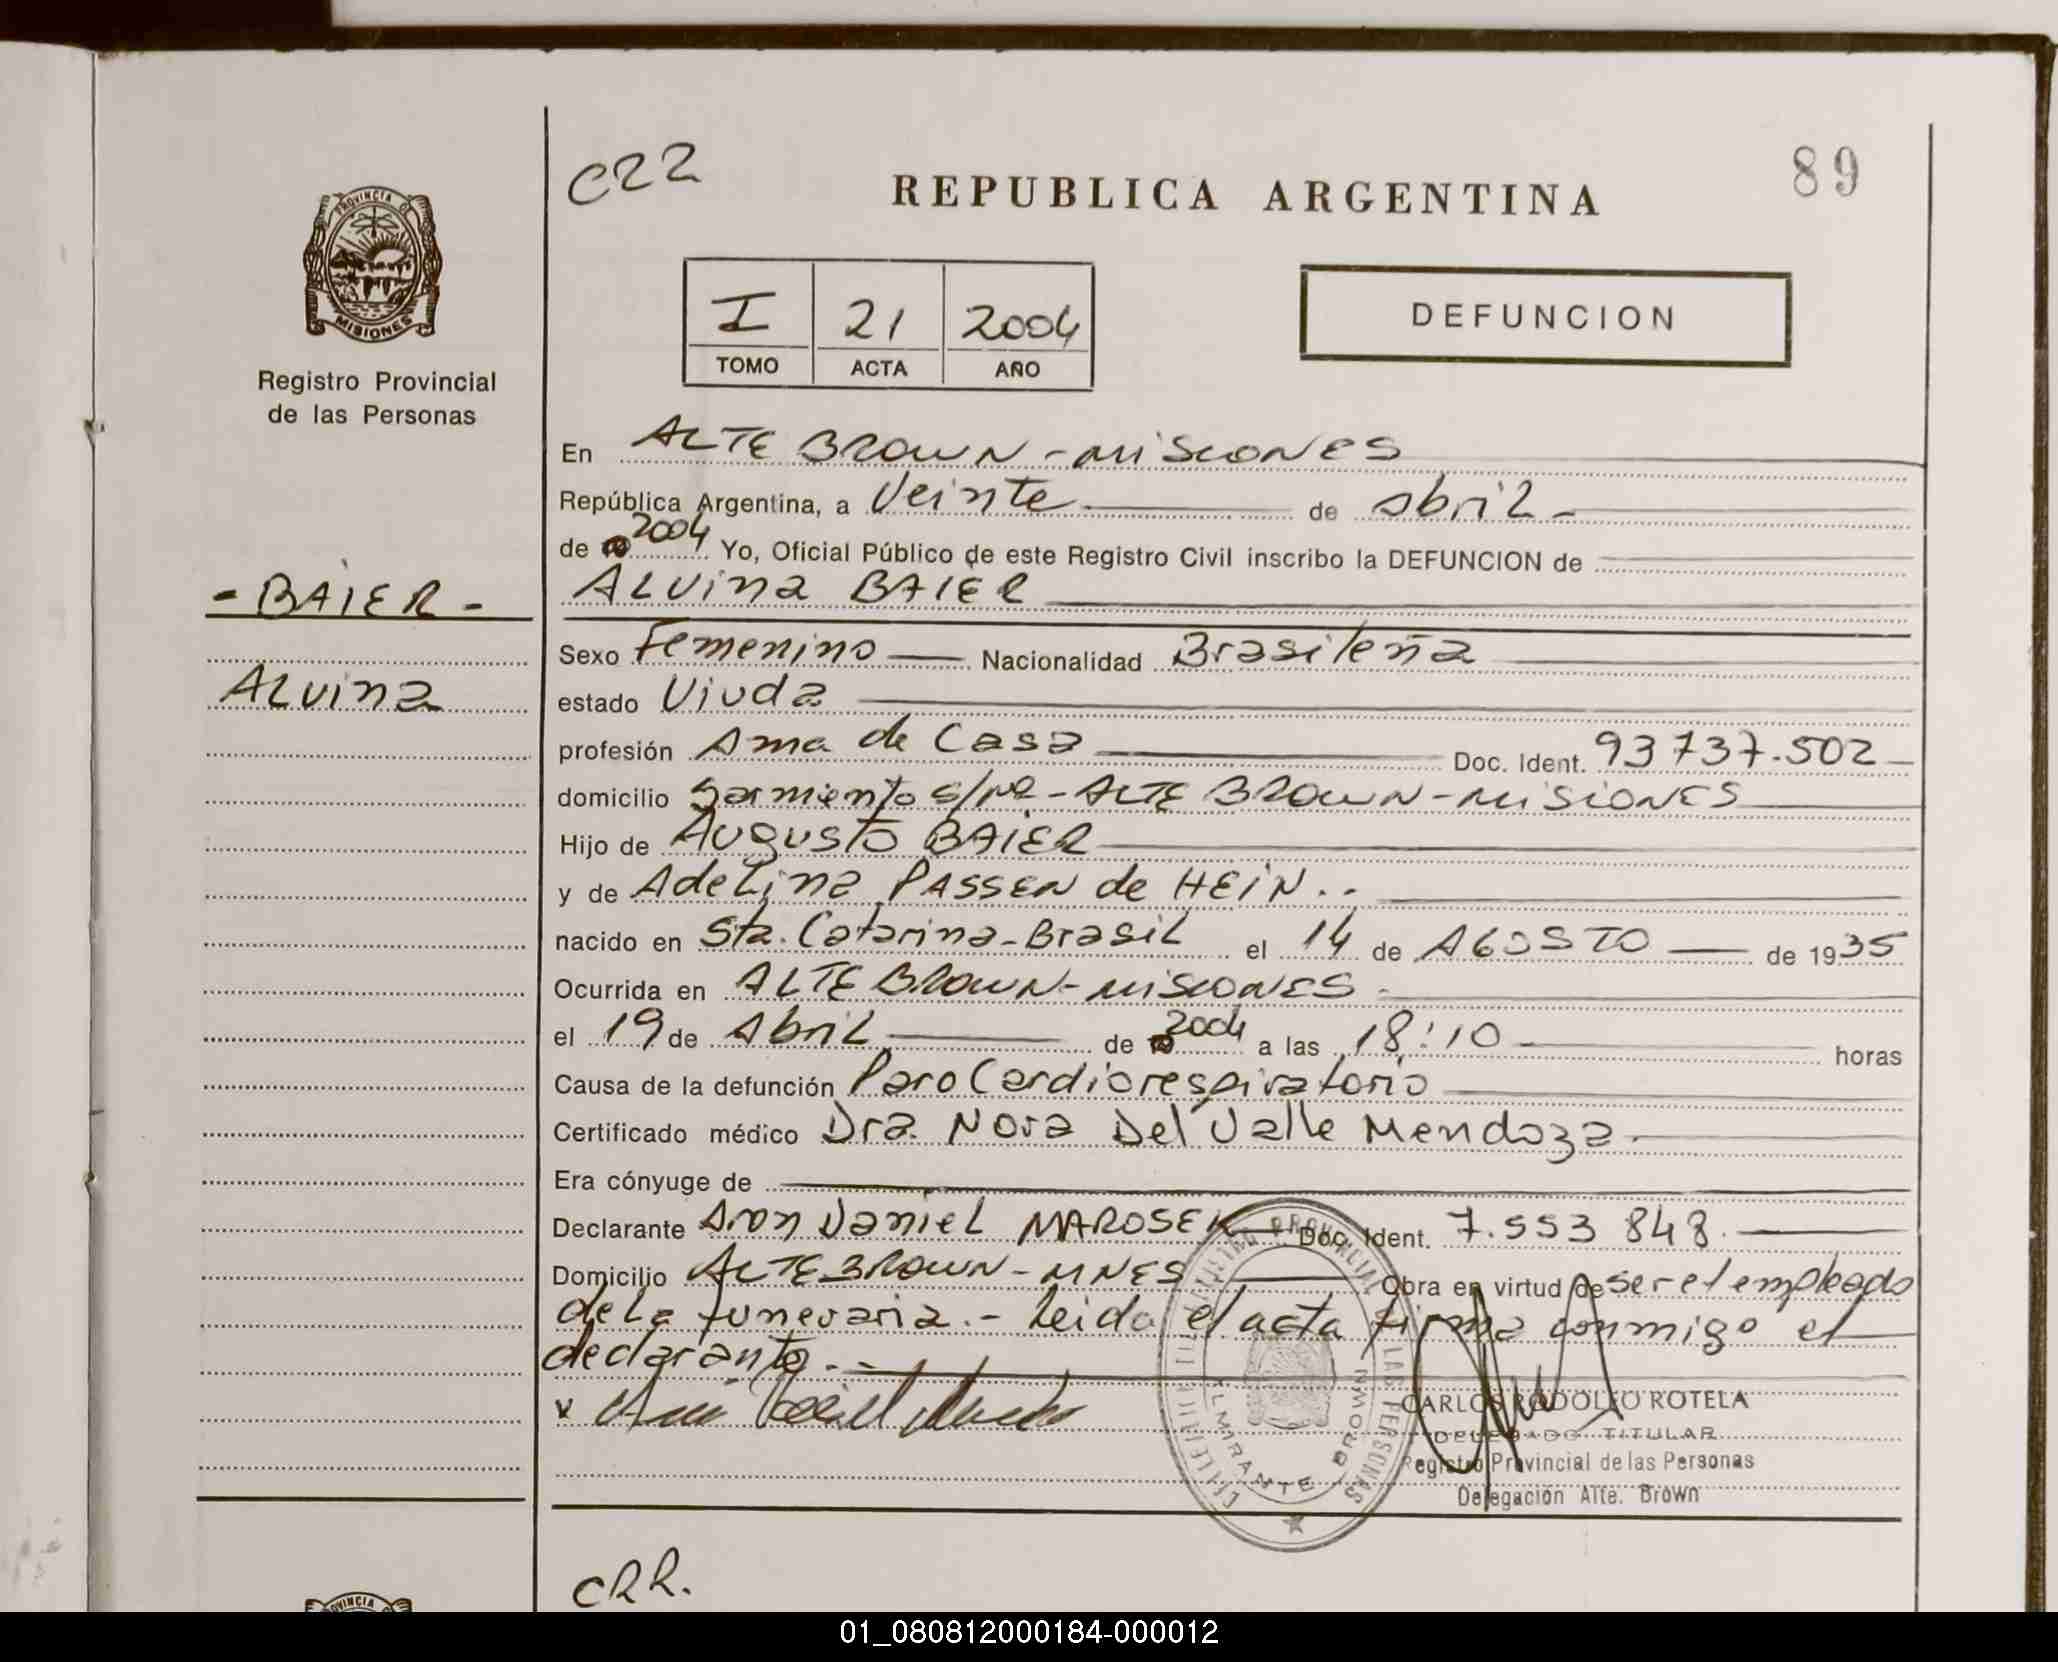 CRR
REPUBLICA ARGENTINA
89
PROVINCIA DE
MISIONES
Registro Provincial
de las Personas
I 21 2004
TOMO ACTA AÑO
DEFUNCION
En ALTE BROWN - MISIONES
República Argentina, a Veinte de Abril -
de 2004 Yo, Oficial Público de este Registro Civil inscribo la DEFUNCION de
- BAIER -
ALVina BAIER
Sexo Femenino Nacionalidad Brasileña
ALvina
estado Viuda
profesión Ama de Casa Doc. Ident. 93737.502
domicilio Sarmiento s/nº - ALTE BROWN - MISIONES
Hijo de Augusto BAIER
y de Adelina PASSEN de HEIN..
nacido en Sta. Catarina - Brasil el 14 de AGOSTO de 1935
Ocurrida en ALTE BROWN - MISIONES -
el 19 de Abril de 2004 a las 18:10 horas
Causa de la defunción Paro Cardiorespiratorio
Certificado médico Dra. Nora Del Valle Mendoza
Era cónyuge de
Declarante Aron Daniel MAROSEK Doc. Ident. 7.553 848.
Domicilio ALTE BROWN - MNES Obra en virtud de ser el empleado
de La funeraria. - Leida el acta firma conmigo el
declarante. -
CARLOS RODOLFO ROTELA
DELEGADO TITULAR
Registro Provincial de las Personas
Delegación Alte. Brown
ALMIRANTE BROWN
CRR.
PROVINCIA
01_080812000184-000012